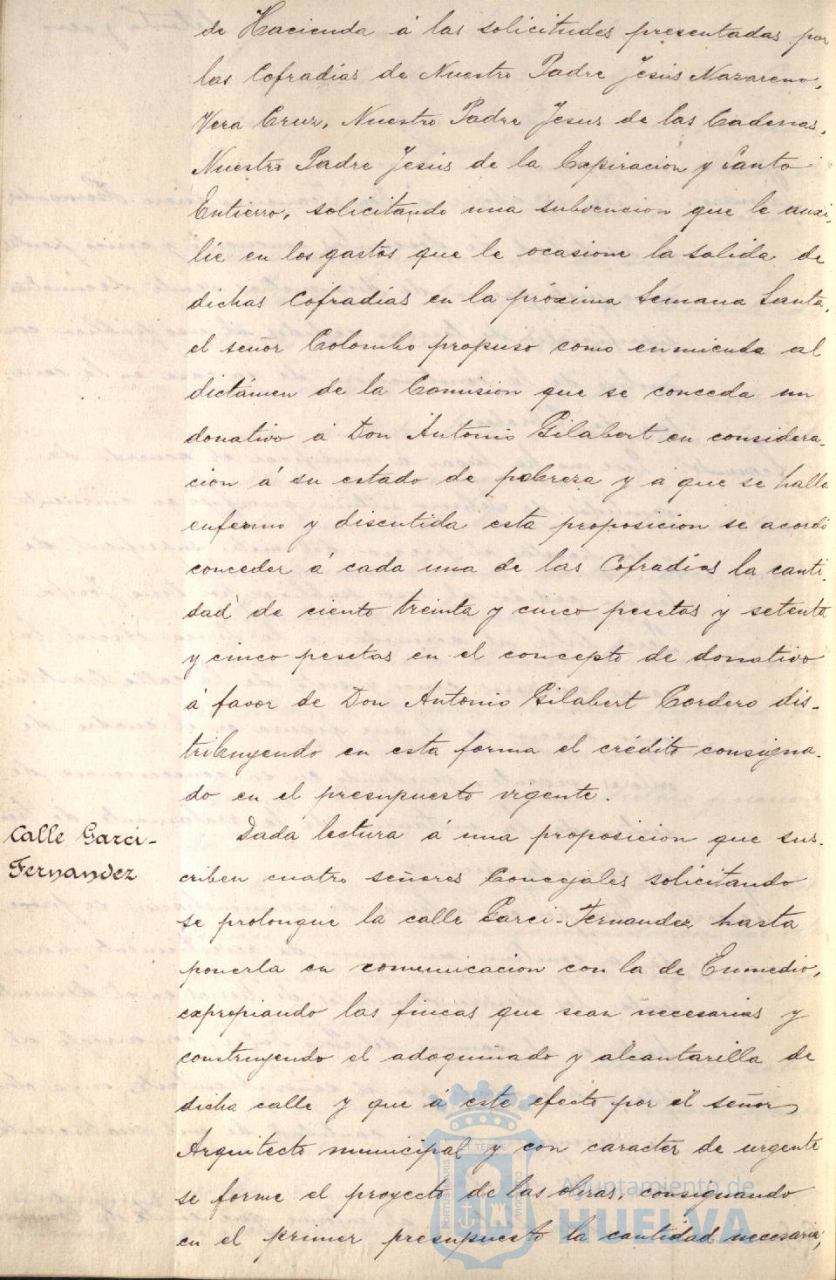 de Hacienda á las solicitudes presentadas por
las Cofradías de Nuestro Padre Jesús Nazareno,
Vera Cruz, Nuestro Padre Jesus de las Cadenas,
Nuestro Padre Jesús de la Expiracion y Santo
Entierro, solicitando una subvencion que le auxi-
lie en los gastos que le ocasione la salida de
dichas Cofradías en la próxima Semana Santa,
el señor Colombo propuso como enmienda al
dictámen de la Comision que se conceda un
donativo á Don Antonio Gilabert en considera-
cion á su estado de pobreza y á que se halle
enfermo y discutida esta proposicion se acordó
conceder á cada una de las Cofradías la canti-
dad de ciento treinta y cinco pesetas y setenta
y cinco pesetas en el concepto de donativo
á favor de Don Antonio Gilabert Cordero dis-
tribuyendo en esta forma el crédito consigna-
do en el presupuesto vigente.
Calle Garci-
Fernandez
Dada lectura á una proposicion que sus-
criben cuatro señores Concejales solicitando
se prolongue la calle Garci-Fernandez hasta
ponerla en comunicacion con la de Enmedio,
expropiando las fincas que sean necesarias y
construyendo el adoquinado y alcantarilla de
dicha calle y que á este efecto por el señor
Arquitecto municipal y con caracter de urgente
se forme el proyecto de las obras, consignando
en el primer presupuesto la cantidad necesaria,
Ayuntamiento de
HUELVA